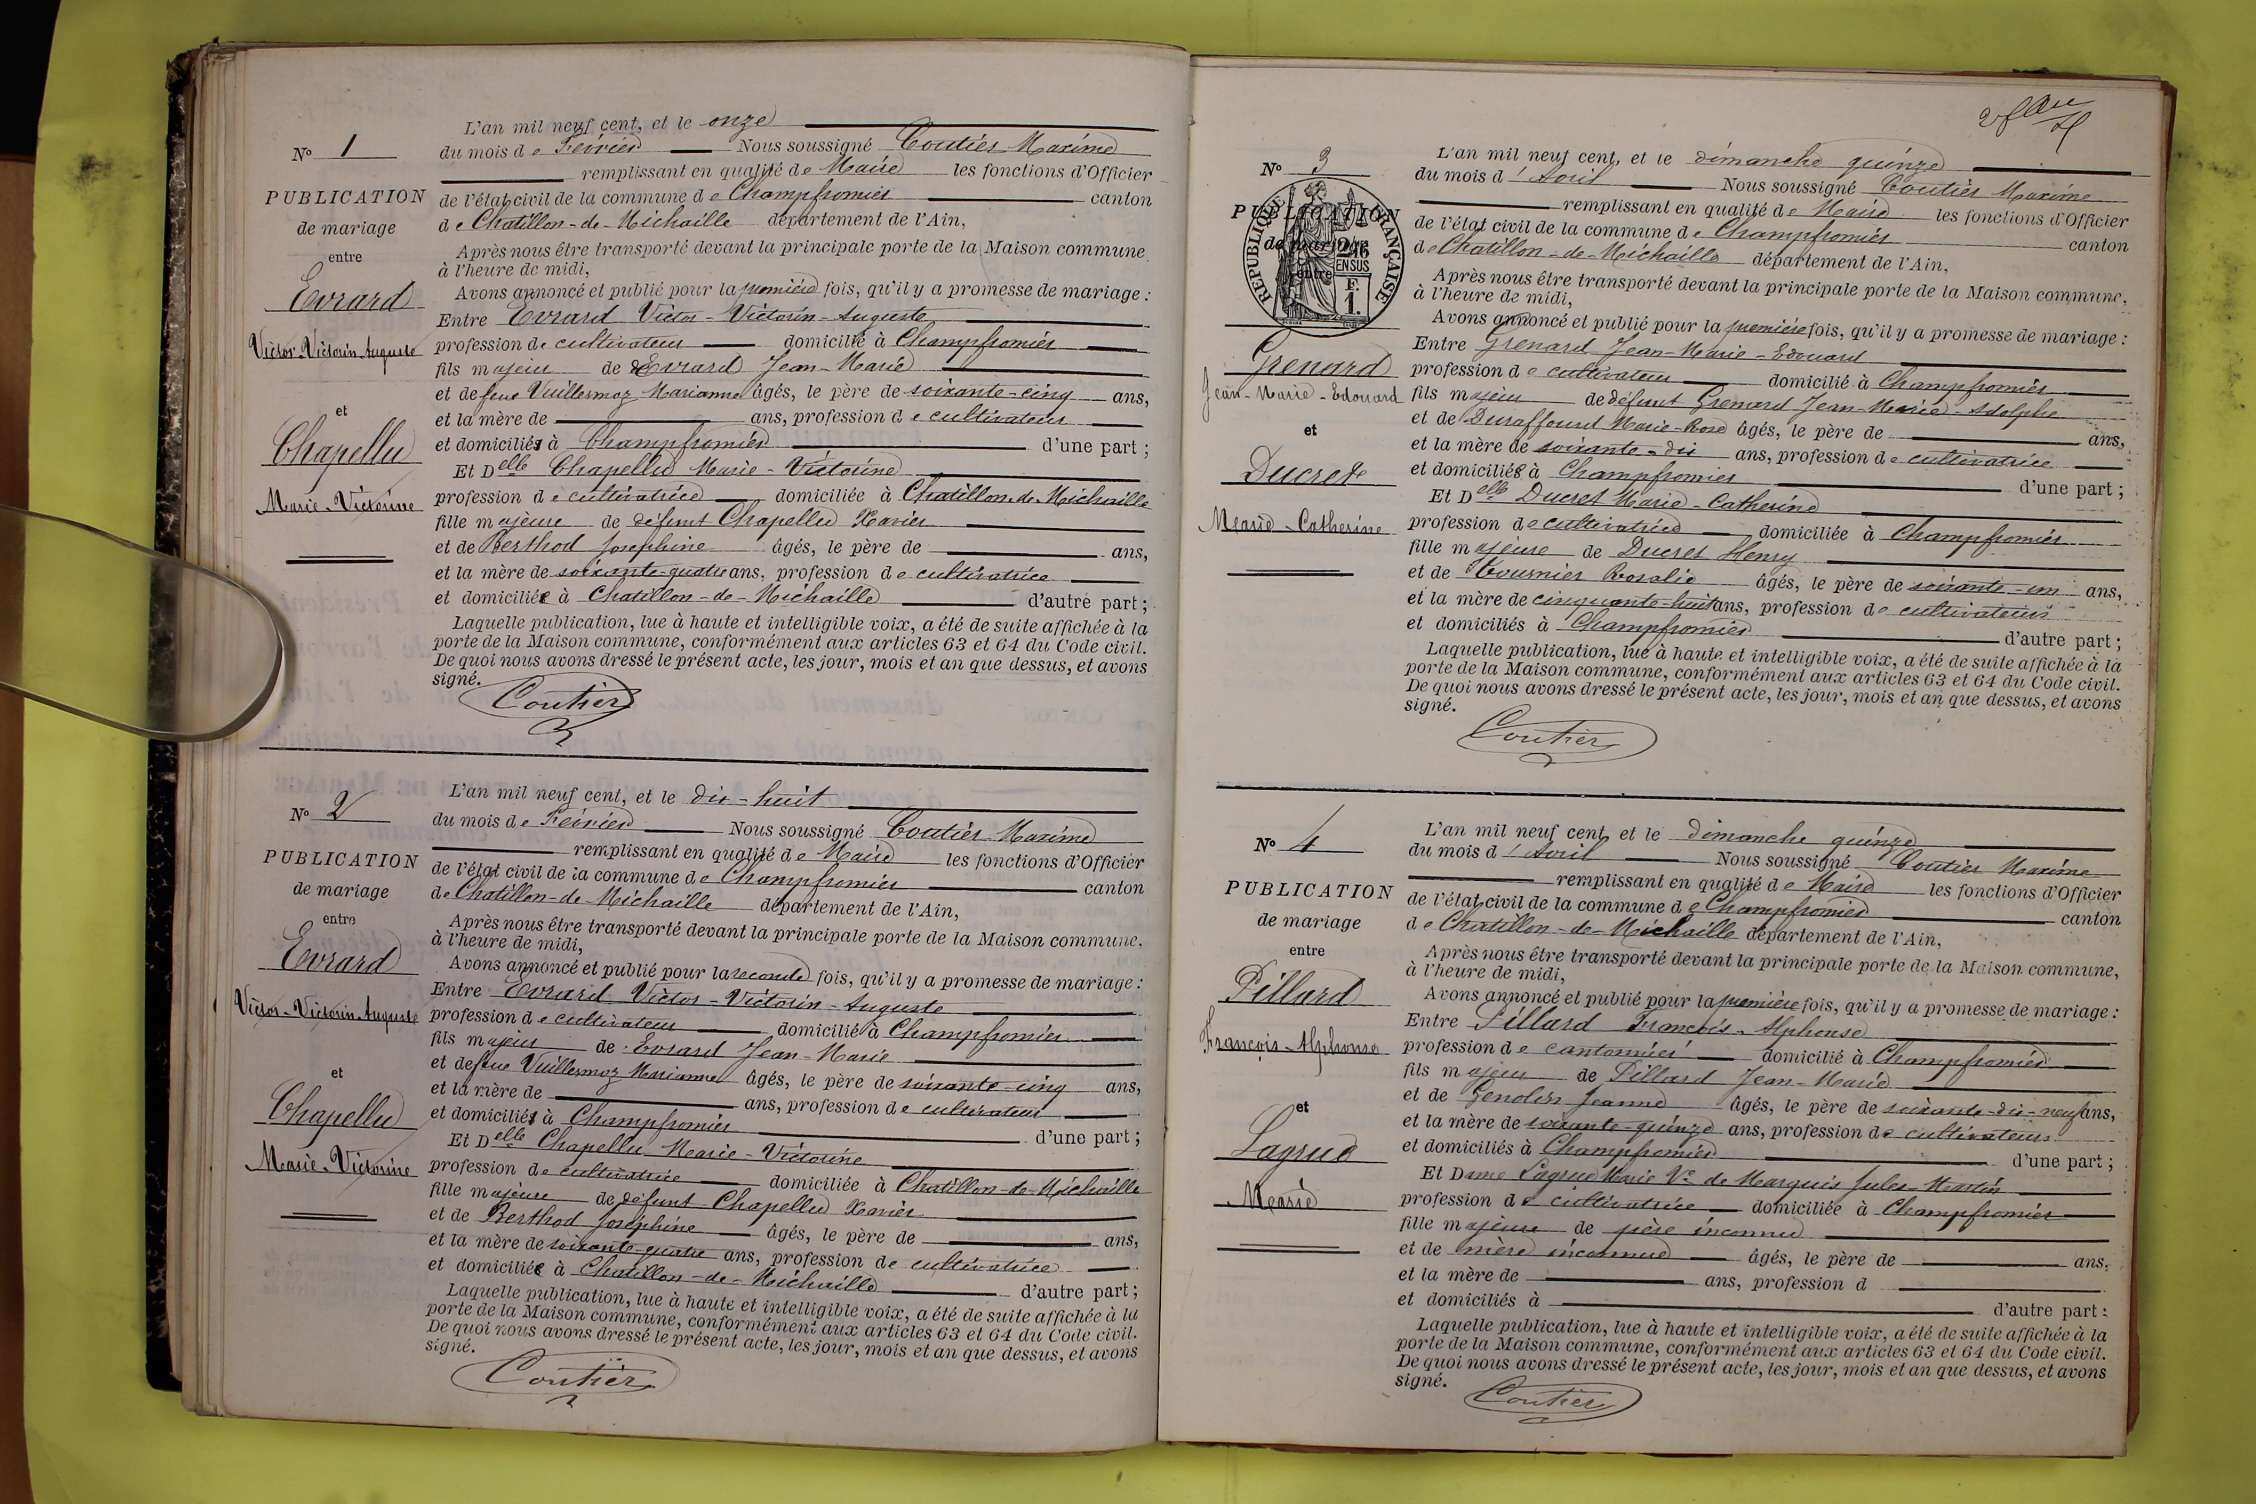 N° 1
PUBLICATION
de mariage
entre
Evrard
Victor-Victorin-Auguste
et
Chapellu
Marie-Victorine
L'an mil neuf cent, et le onze
du mois de Février Nous soussigné Coutier Maxime
remplissant en qualité de Maire les fonctions d'Officier
de l'état civil de la commune de Champfromier canton
de Chatillon-de-Michaille département de l'Ain,
Après nous être transporté devant la principale porte de la Maison commune
à l'heure de midi,
Avons annoncé et publié pour la première fois, qu'il y a promesse de mariage :
Entre Evrard Victor-Victorin-Auguste
profession de cultivateur domicilié à Champfromier
fils majeur de Evrard Jean-Marie
et de feue Vuillermoz Marianne âgés, le père de soixante-cinq ans,
et la mère de ans, profession de cultivateur
et domiciliés à Champfromier d'une part ;
Et Delle Chapellu Marie-Victorine
profession de cultivatrice domiciliée à Chatillon-de-Michaille
fille majeure de défunt Chapellu Xavier
et de Berthod Joséphine âgés, le père de ans,
et la mère de soixante-quatre ans, profession de cultivatrice
et domiciliée à Chatillon-de-Michaille d'autre part ;
Laquelle publication, lue à haute et intelligible voix, a été de suite affichée à la
porte de la Maison commune, conformément aux articles 63 et 64 du Code civil.
De quoi nous avons dressé le présent acte, les jour, mois et an que dessus, et avons
signé.
Coutier
N° 2
PUBLICATION
de mariage
entre
Evrard
Victor-Victorin-Auguste
et
Chapellu
Marie-Victorine
L'an mil neuf cent, et le dix-huit
du mois de Février Nous soussigné Coutier Maxime
remplissant en qualité de Maire les fonctions d'Officier
de l'état civil de la commune de Champfromier canton
de Chatillon-de-Michaille département de l'Ain,
Après nous être transporté devant la principale porte de la Maison commune,
à l'heure de midi,
Avons annoncé et publié pour la seconde fois, qu'il y a promesse de mariage :
Entre Evrard Victor-Victorin-Auguste
profession de cultivateur domicilié à Champfromier
fils majeur de Evrard Jean-Marie
et de feue Vuillermoz Marianne âgés, le père de soixante-cinq ans,
et la mère de ans, profession de cultivateur
et domiciliés à Champfromier d'une part ;
Et Delle Chapellu Marie-Victorine
profession de cultivatrice domiciliée à Chatillon-de-Michaille
fille majeure de défunt Chapellu Xavier
et de Berthod Joséphine âgés, le père de ans,
et la mère de soixante-quatre ans, profession de cultivatrice
et domiciliée à Chatillon-de-Michaille d'autre part ;
Laquelle publication, lue à haute et intelligible voix, a été de suite affichée à la
porte de la Maison commune, conformément aux articles 63 et 64 du Code civil.
De quoi nous avons dressé le présent acte, les jour, mois et an que dessus, et avons
signé.
Coutier
N° 3
PUBLICATION
de mariage
entre
RÉPUBLIQUE FRANÇAISE
2/10
EN SUS
F.
1.
Grenard
Jean-Marie-Edouard
et
Ducret
Marie-Catherine
L'an mil neuf cent, et le dimanche quinze
du mois d'Avril Nous soussigné Coutier Maxime
remplissant en qualité de Maire les fonctions d'Officier
de l'état civil de la commune de Champfromier canton
de Chatillon-de-Michaille département de l'Ain,
Après nous être transporté devant la principale porte de la Maison commune,
à l'heure de midi,
Avons annoncé et publié pour la première fois, qu'il y a promesse de mariage :
Entre Grenard Jean-Marie-Edouard
profession de cultivateur domicilié à Champfromier
fils majeur de défunt Grenard Jean-Marie-Adolphe
et de Duraffourd Marie-Rose âgés, le père de ans,
et la mère de soixante-dix ans, profession de cultivatrice
et domiciliée à Champfromier d'une part ;
Et Delle Ducret Marie-Catherine
profession de cultivatrice domiciliée à Champfromier
fille majeure de Ducret Henry
et de Tournier Rosalie âgés, le père de soixante-un ans,
et la mère de cinquante-huit ans, profession de cultivateurs
et domiciliés à Champfromier d'autre part ;
Laquelle publication, lue à haute et intelligible voix, a été de suite affichée à la
porte de la Maison commune, conformément aux articles 63 et 64 du Code civil.
De quoi nous avons dressé le présent acte, les jour, mois et an que dessus, et avons
signé.
Coutier
N° 4
PUBLICATION
de mariage
entre
Pillard
François-Alphonse
et
Lagrue
Marie
L'an mil neuf cent, et le dimanche quinze
du mois d'Avril Nous soussigné Coutier Maxime
remplissant en qualité de Maire les fonctions d'Officier
de l'état civil de la commune de Champfromier canton
de Chatillon-de-Michaille département de l'Ain,
Après nous être transporté devant la principale porte de la Maison commune,
à l'heure de midi,
Avons annoncé et publié pour la première fois, qu'il y a promesse de mariage :
Entre Pillard François-Alphonse
profession de cantonnier domicilié à Champfromier
fils majeur de Pillard Jean-Marie
et de Genolin Jeanne âgés, le père de soixante-dix-neuf ans,
et la mère de soixante-quinze ans, profession de cultivateurs
et domiciliés à Champfromier d'une part ;
Et Dame Lagrue Marie Ve de Marquis Jules-Martin
profession de cultivatrice domiciliée à Champfromier
fille majeure de père inconnu
et de mère inconnue âgés, le père de ans,
et la mère de ans, profession d
et domiciliés à d'autre part :
Laquelle publication, lue à haute et intelligible voix, a été de suite affichée à la
porte de la Maison commune, conformément aux articles 63 et 64 du Code civil.
De quoi nous avons dressé le présent acte, les jour, mois et an que dessus, et avons
signé.
Coutier